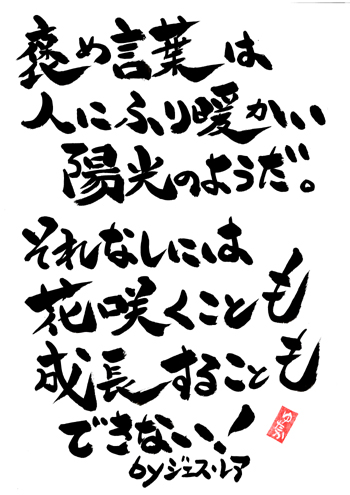 褒め言葉は
人にふり暖かい
陽光のようだ。
それなしには
花咲くことも
成長することも
できない!
byジェス・レア